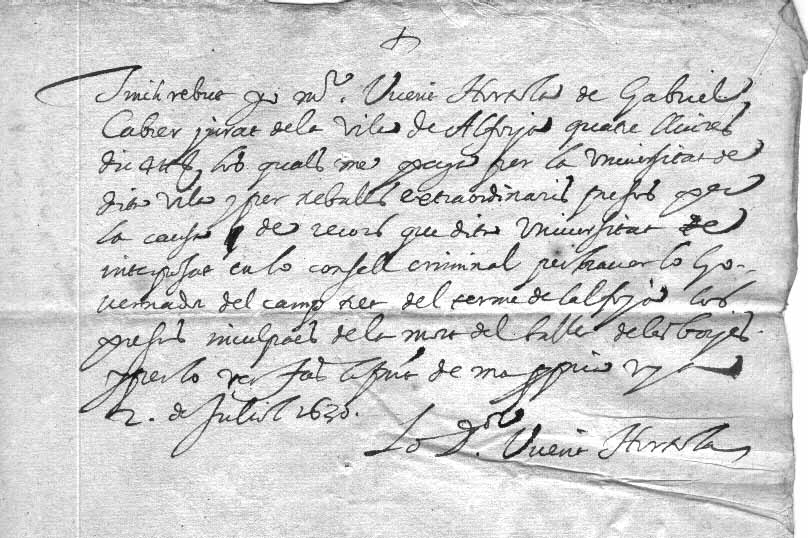 Tinch rebut yo mᵒʳ. Vicent Hortola de Gabriel
Cabrer jurat de la vila de Alforja quatre lliures
dic 4 ll los quals me paga per la Universitat de
dita vila y per treballs extraordinaris presos per
la causa de recors que dita Universitat te
interposat en lo consell criminal per traurer lo Go-
vernador del camp del terme de lalforja los
presos inculpats de la mort del batlle de les borjes.
y per lo ver fas la present de ma propia vy
2. de Juliol 1630.
Lo Dᵒʳ. Vicent Hortola